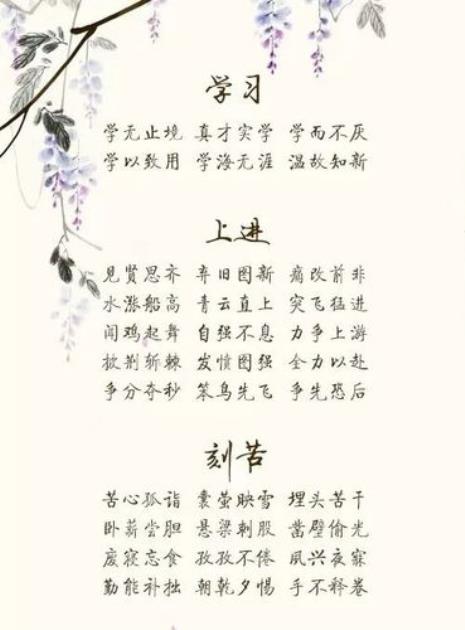 学习
学无止境 真才实学 学而不厌
学以致用 学海无涯 温故知新
上进
见贤思齐 弃旧图新 痛改前非
水涨船高 青云直上 突飞猛进
闻鸡起舞 自强不息 力争上游
披荆斩棘 发愤图强 全力以赴
争分夺秒 笨鸟先飞 争先恐后
刻苦
苦心孤诣 囊萤映雪 埋头苦干
卧薪尝胆 悬梁刺股 凿壁偷光
废寝忘食 孜孜不倦 夙兴夜寐
勤能补拙 朝乾夕惕 手不释卷